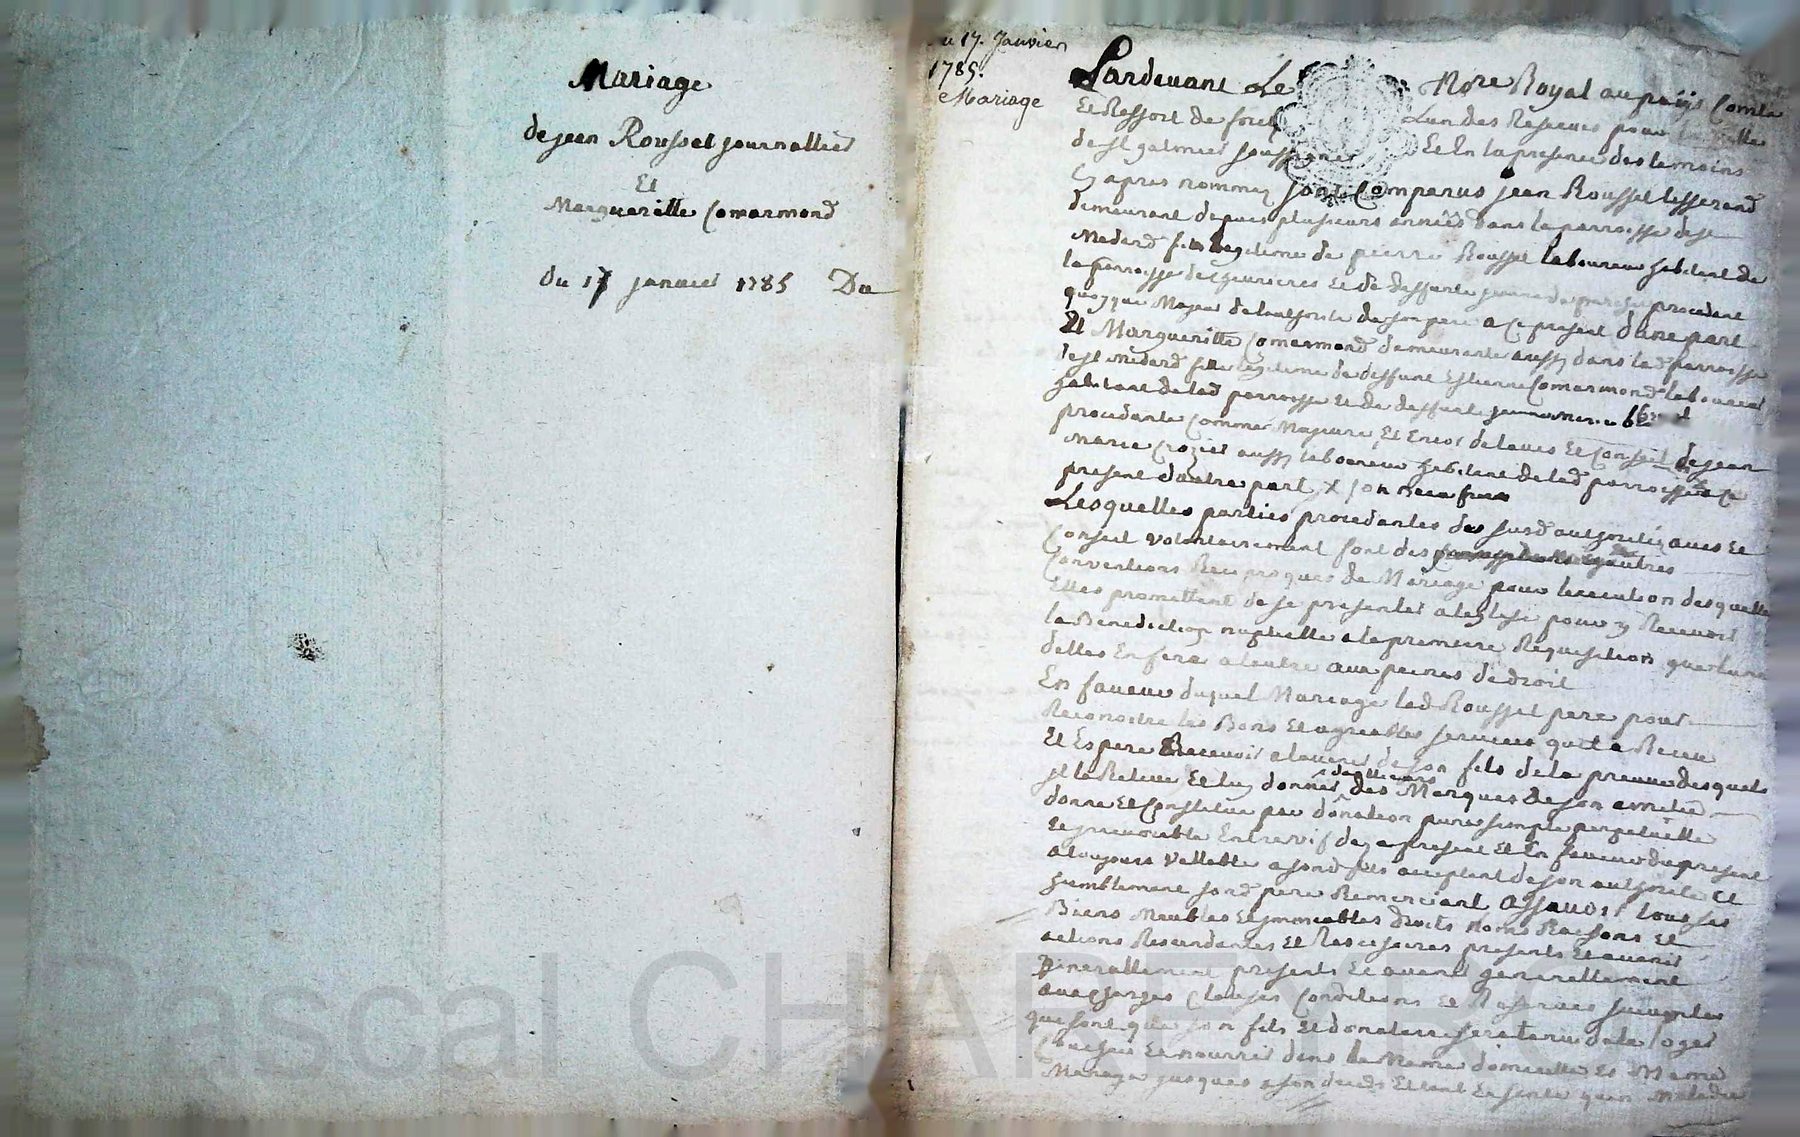 Mariage
de jean Rousset journallier
Et
Margueritte Comarmond
du 17 janvier 1785 Du
du 17. Janvier
1785.
Mariage
Pardevant Le Nore Royal au païs Comté
Et Ressort de forez Lun des Reserves pour la ville
de st galmier soussigné Et En la presence des temoins
Cy apres nommez sont Comparus jean Rousset tisserand
demeurant depuis plusieurs années dans la parroisse de st
Medard fils legitime de pierre Rousset laboureur habitant de
la parroisse de Chevrieres Et de deffunte procedant
quoyque Majeur de lauthorité de son pere a Ce present dune part
Et Margueritte Comarmond demeurante aussy dans lad parroisse
de st Medard fille legitime de deffunt Estienne Comarmond laboureur
habitant de lad parroisse et de deffunte
procedante Comme Majeure Et Encor de lavis Et Conseil de jean
Marie Crozier aussy laboureur habitant de lad parroisse a Ce
present dautre part x son beau frere
Lesquelles parties procedantes des susd authorité, avis Et
Conseil volontairement font des autres
Conventions Reciproques de Mariage pour lexecution desquelles
Elles promettent de se presenter a leglise pour y Recevoir
la Benediction nuptialle a la premiere Requisition que lune
delles En fera a lautre aux peines de droit
En faveur duquel Mariage led Rousset pere pour
Reconoitre les Bons Et agreables services quil a Receu
Et Espere Recevoir a lavenir de son fils de la preuve desquels
il la Releve Et luy donner dailleurs des Marques de son amitié
donne Et Constitue par donation pure simple perpetuelle
Et jrrevocable Entrevifs dez a present Et En faveur du present
a toujours vallable a sond fils acceptant de son authorité Et
humblement sond pere Remerciant assavoir tous ses
Biens Meubles Et jmmeubles droits noms Raisons Et
actions Rescindantes Et Rescisoires presents Et avenir
generallement presents Et avenir generallement
aux Charges Clauses Conditions et Reserves suivantes
qui sont que son fils Et donataire sera tenu de le loger
Coucher Et nourrir dans le Meme domicille Et Meme
Menage jusques a son deceds Et tant En santé quen Maladie
Pascal CHAREYRON